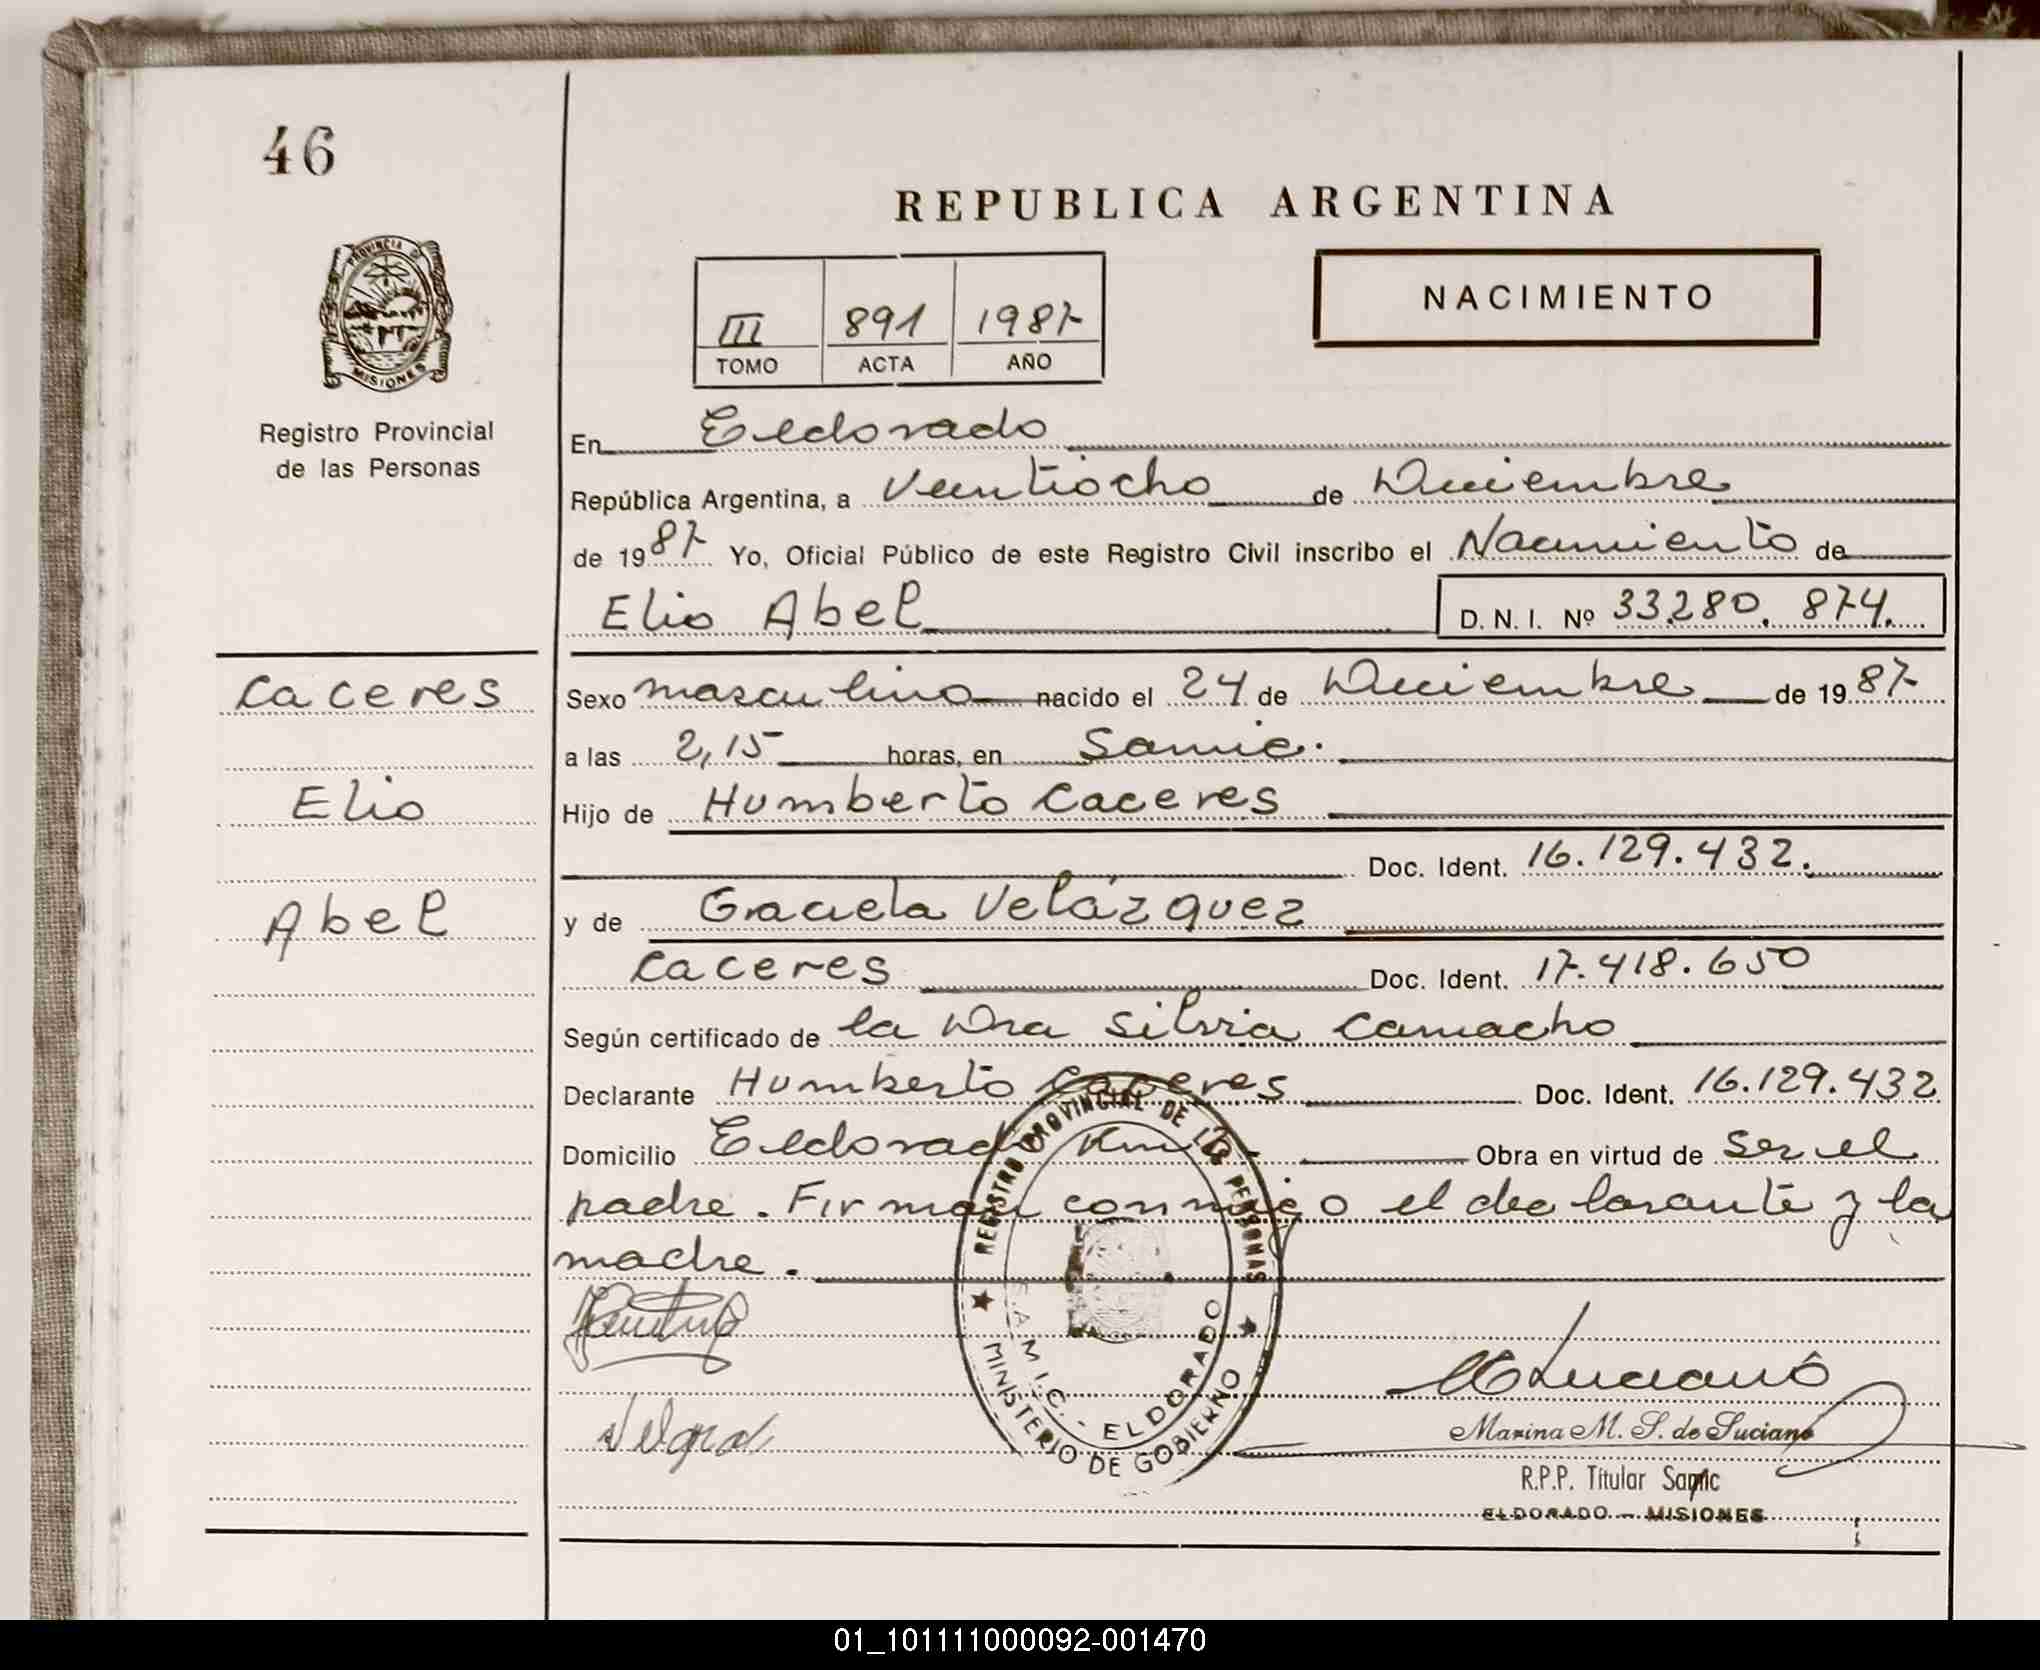 46
REPUBLICA ARGENTINA
PROVINCIA D
MISIONES
III 891 1987
TOMO ACTA AÑO
NACIMIENTO
Registro Provincial
de las Personas
En Eldorado
República Argentina, a Veintiocho de Diciembre
de 1987 Yo, Oficial Público de este Registro Civil inscribo el Nacimiento de
Elio Abel D. N. I. Nº 33.280.874.
Caceres
Elio
Abel
Sexo masculino nacido el 24 de Diciembre de 1987
a las 2,15 horas, en Samic.
Hijo de Humberto Caceres
Doc. Ident. 16.129.432.
y de Graciela Velázquez
Caceres Doc. Ident. 17.418.650
Según certificado de la Dra Silvia Camacho
Declarante Humberto Caceres Doc. Ident. 16.129.432
Domicilio Eldorado Km Obra en virtud de ser el
padre. Firman conmigo el declarante y la
madre.
REGISTRO PROVINCIAL DE LAS PERSONAS
S.A.M.I.C. - ELDORADO
MINISTERIO DE GOBIERNO
Marina M. S. de Luciano
R.P.P. Titular Samic
ELDORADO - MISIONES
01_101111000092-001470